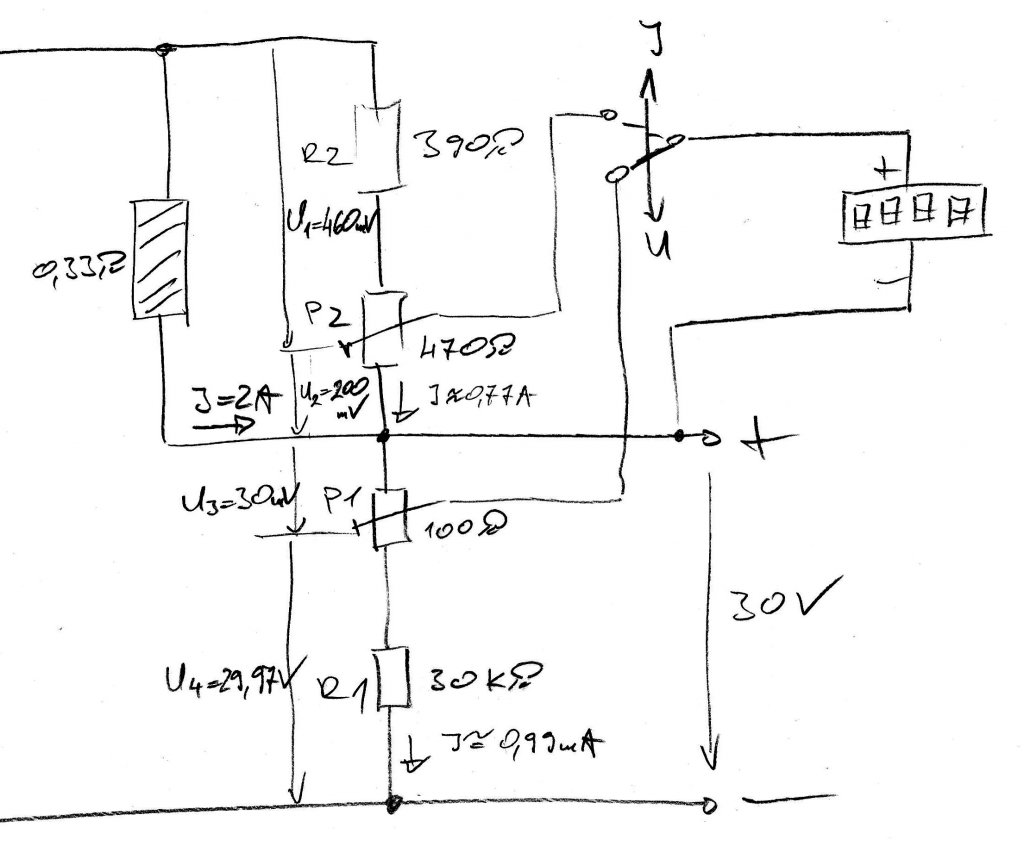 J
R2
390Ω
U1=460mV
+
0,33Ω
U
−
P2
470Ω
J=2A
U2=200
mV
J≈0,77A
+
U3=30mV
P1
100Ω
30V
U4=29,97V
R1
30kΩ
J≈0,99mA
−